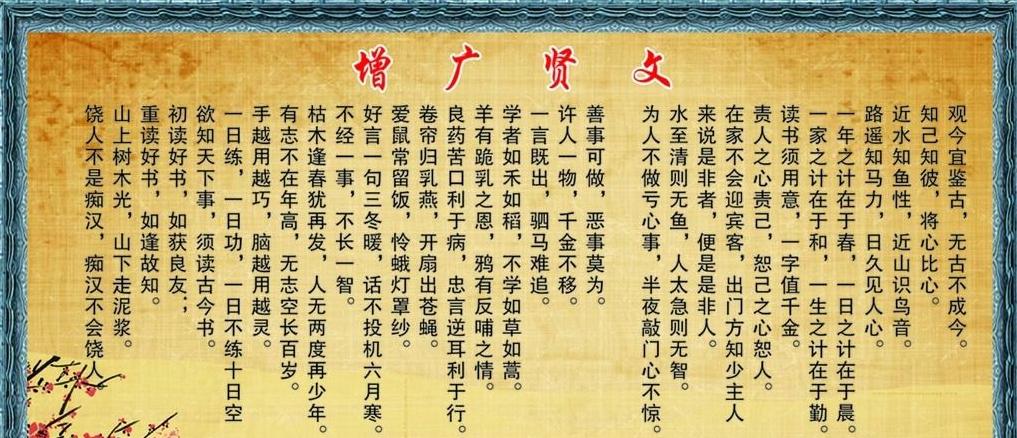 增广贤文
观今宜鉴古，无古不成今。
知己知彼，将心比心。
近水知鱼性，近山识鸟音。
路遥知马力，日久见人心。
一年之计在于春，一日之计在于晨。
一家之计在于和，一生之计在于勤。
读书须用意，一字值千金。
责人之心责己，恕己之心恕人。
在家不会迎宾客，出门方知少主人
来说是非者，便是是非人。
水至清则无鱼，人太急则无智。
为人不做亏心事，半夜敲门心不惊。
善事可做，恶事莫为。
许人一物，千金不移。
一言既出，驷马难追。
学者如禾如稻，不学如草如蒿。
羊有跪乳之恩，鸦有反哺之情。
良药苦口利于病，忠言逆耳利于行。
卷帘归乳燕，开扇出苍蝇。
爱鼠常留饭，怜蛾灯罩纱。
好言一句三冬暖，话不投机六月寒。
不经一事，不长一智。
枯木逢春犹再发，人无两度再少年。
有志不在年高，无志空长百岁。
手越用越巧，脑越用越灵。
一日练，一日功，一日不练十日空
欲知天下事，须读古今书。
初读好书，如获良友；
重读好书，如逢故知。
山上树木光，山下走泥浆。
饶人不是痴汉，痴汉不会饶人。